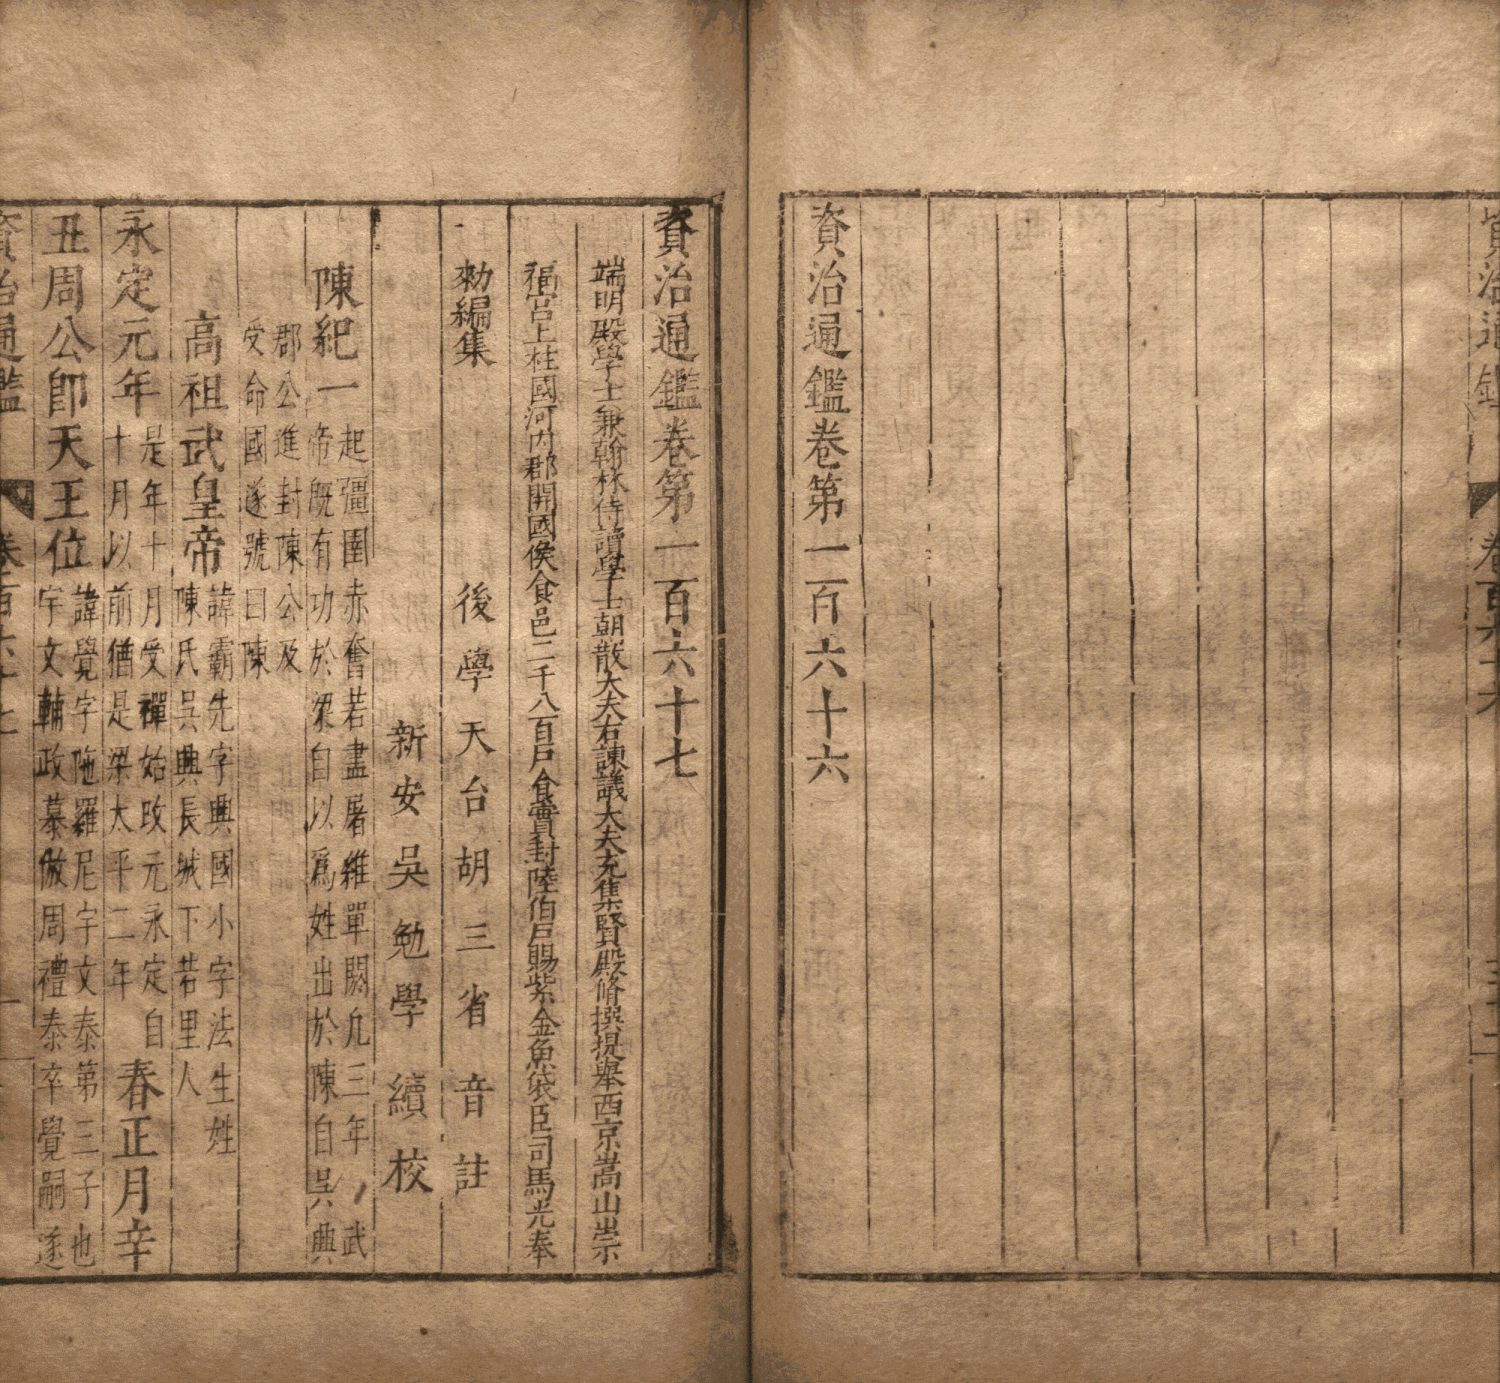 資治通鑑 卷百六十六
資治通鑑卷第一百六十六
資治通鑑卷第一百六十七
端明殿學士兼翰林侍讀學士朝散大夫右諫議大夫充集賢殿脩撰提舉西京嵩山崇
福宮上柱國河內郡開國侯食邑二千八百戶食實封陸伯戶賜紫金魚袋臣司馬光奉
勑編集 後學天台胡三省音註
新安吳勉學續校
陳紀一 起彊圉赤奮若盡屠維單閼凡三年 武
帝旣有功於梁自以爲姓出於陳自吳興
郡公進封陳公及
受命國遂號曰陳
高祖武皇帝 諱霸先字興國小字法生姓
陳氏吳興長城下若里人
永定元年 是年十月受禪始改元永定自
十月以前猶是梁太平二年 春正月辛
丑周公卽天王位 諱覺字陁羅尼宇文泰第三子也
宇文輔政慕倣周禮泰卒覺嗣遂
資治通鑑 卷百六十七 一